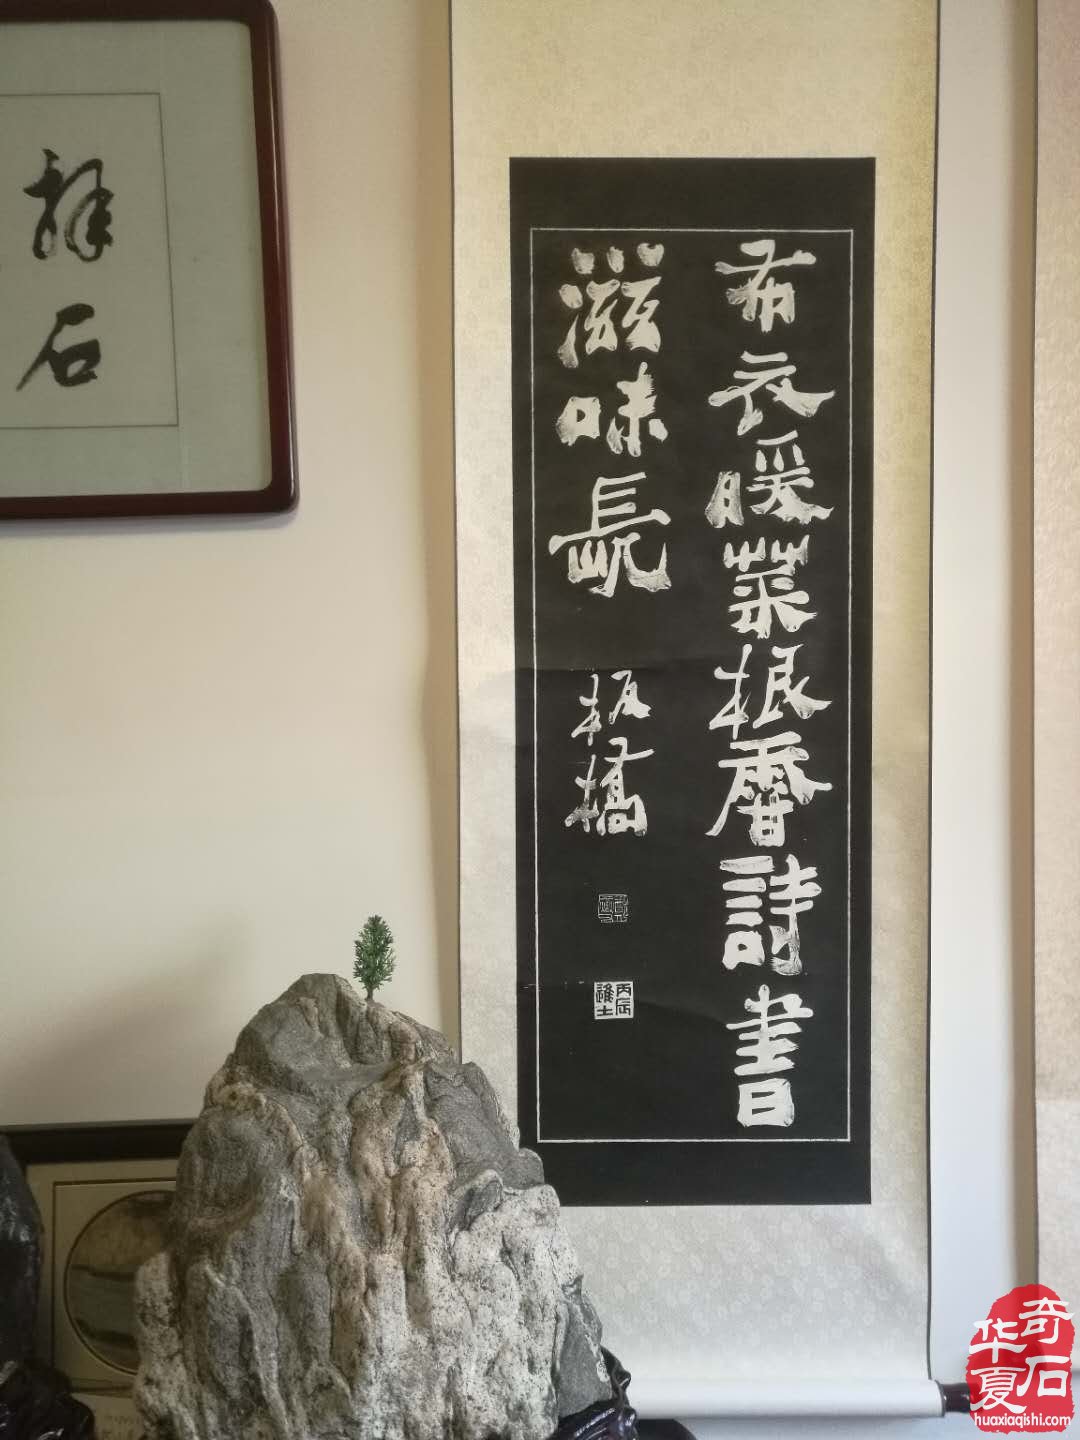 拜石
布衣暖菜根香詩書
滋味長
板橋
丙辰進士
華夏奇石
huaxiaqishi.com